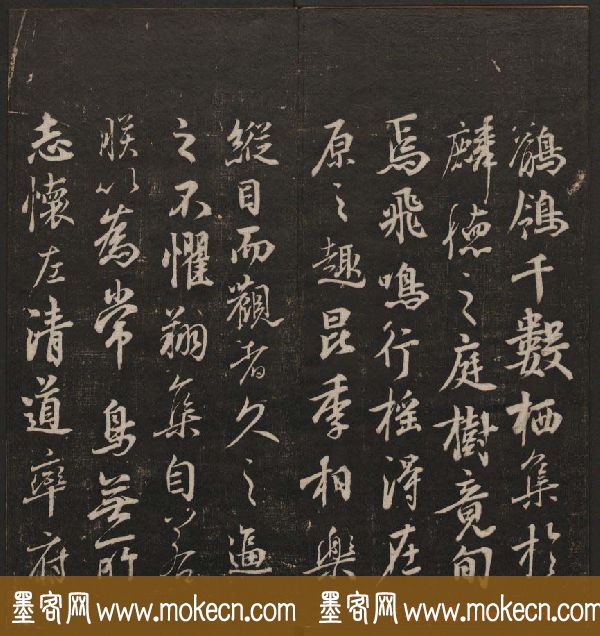 鶺鴒千數栖集於
麟德之庭樹竟旬
焉飛鳴行搖得在
原之趣昆季相樂
縱目而觀者久之逼
之不懼翔集自若
朕以為常鳥無所
志懷左清道率府
墨客网 www.mokecn.com 墨客网 www.mokecn.com